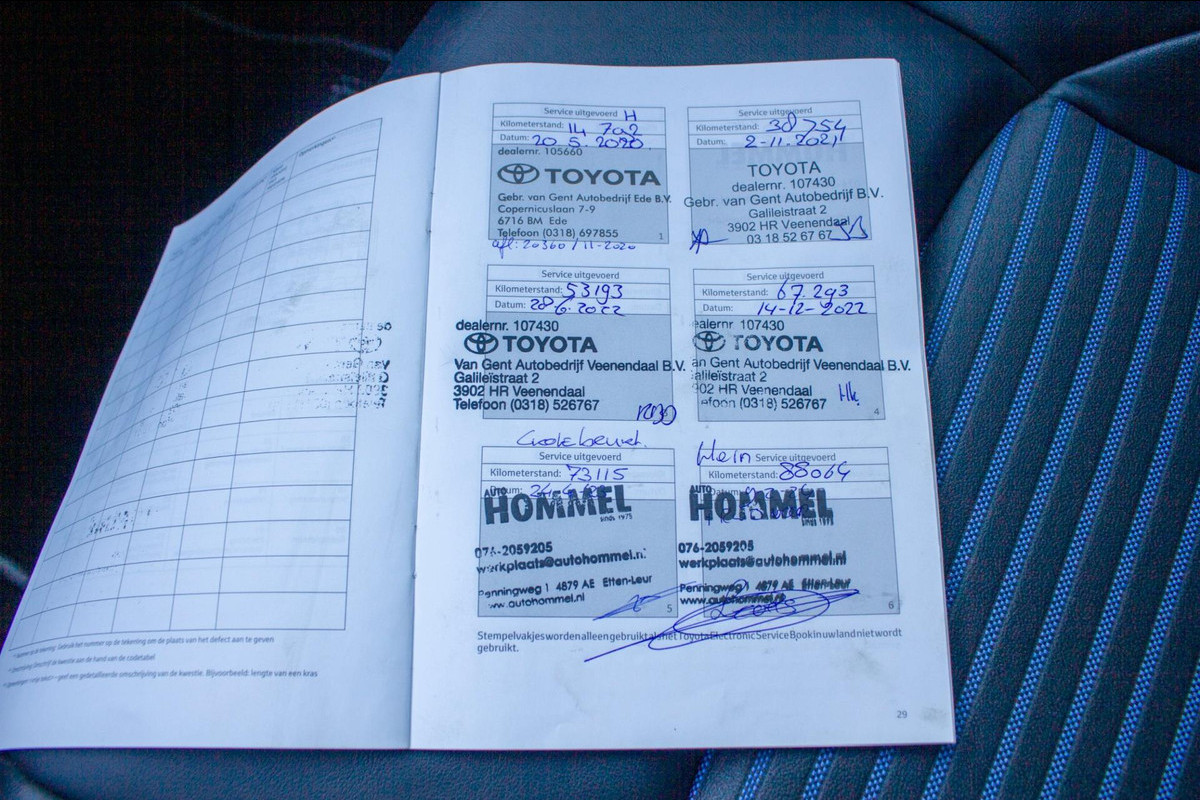 Service uitgevoerd H
Kilometerstand: 14 702
Datum: 20.5.2020.
dealernr. 105660
TOYOTA
Gebr. van Gent Autobedrijf Ede B.V.
Copernicuslaan 7-9
6716 BM Ede
Telefoon (0318) 697855
1
afl: 20360 / 11-2020
Service uitgevoerd
Kilometerstand: 38754
Datum: 2-11-2021
TOYOTA
dealernr. 107430
Gebr. van Gent Autobedrijf B.V.
Galileistraat 2
3902 HR Veenendaal
03 18 52 67 67
Service uitgevoerd
Kilometerstand: 53193
Datum: 28-6-2022
dealernr. 107430
TOYOTA
Van Gent Autobedrijf Veenendaal B.V.
Galileïstraat 2
3902 HR Veenendaal
Telefoon (0318) 526767
Service uitgevoerd
Kilometerstand: 67.293
Datum: 14-12-2022
ealernr. 107430
TOYOTA
an Gent Autobedrijf Veenendaal B.V.
alileïstraat 2
902 HR Veenendaal
efoon (0318) 526767
4
Grote beurt.
Service uitgevoerd
Kilometerstand: 73115
AUTO
HOMMEL
sinds 1975
076-2059205
werkplaats@autohommel.nl
Penningweg 1 4879 AE Etten-Leur
www.autohommel.nl
5
Klein Service uitgevoerd
Kilometerstand: 88064
Datum:
AUTO
HOMMEL
sinds 1975
076-2059205
werkplaats@autohommel.nl
Penningweg 1 4879 AE Etten-Leur
www.autohommel.nl
6
Stempelvakjes worden alleen gebruikt als het Toyota Electronic Service Book in uw land niet wordt
gebruikt.
29